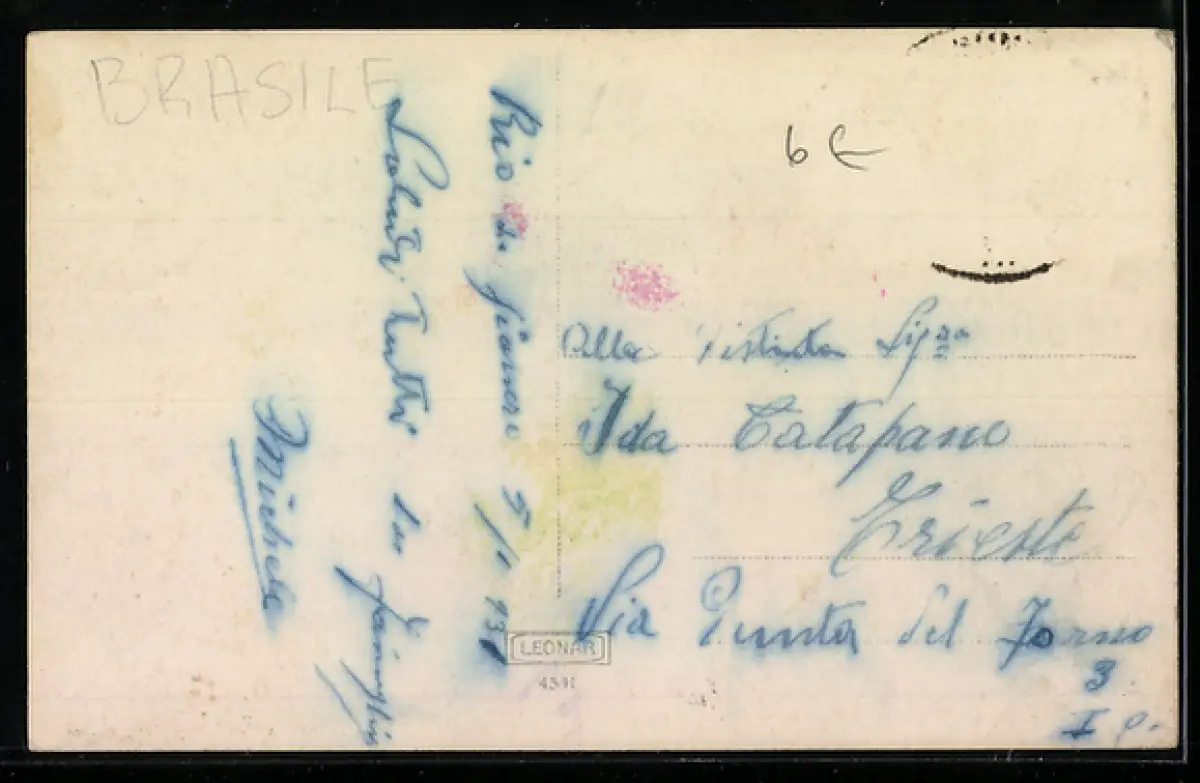 BRASILE
Rio de Jianero 5/1 93
Saluti tutti in famiglia
Michele
6 €
Alla Distinta Sig.ra
Ida Catapano
Trieste
Via Punta del Forno
3
I p.
LEONAR
4591